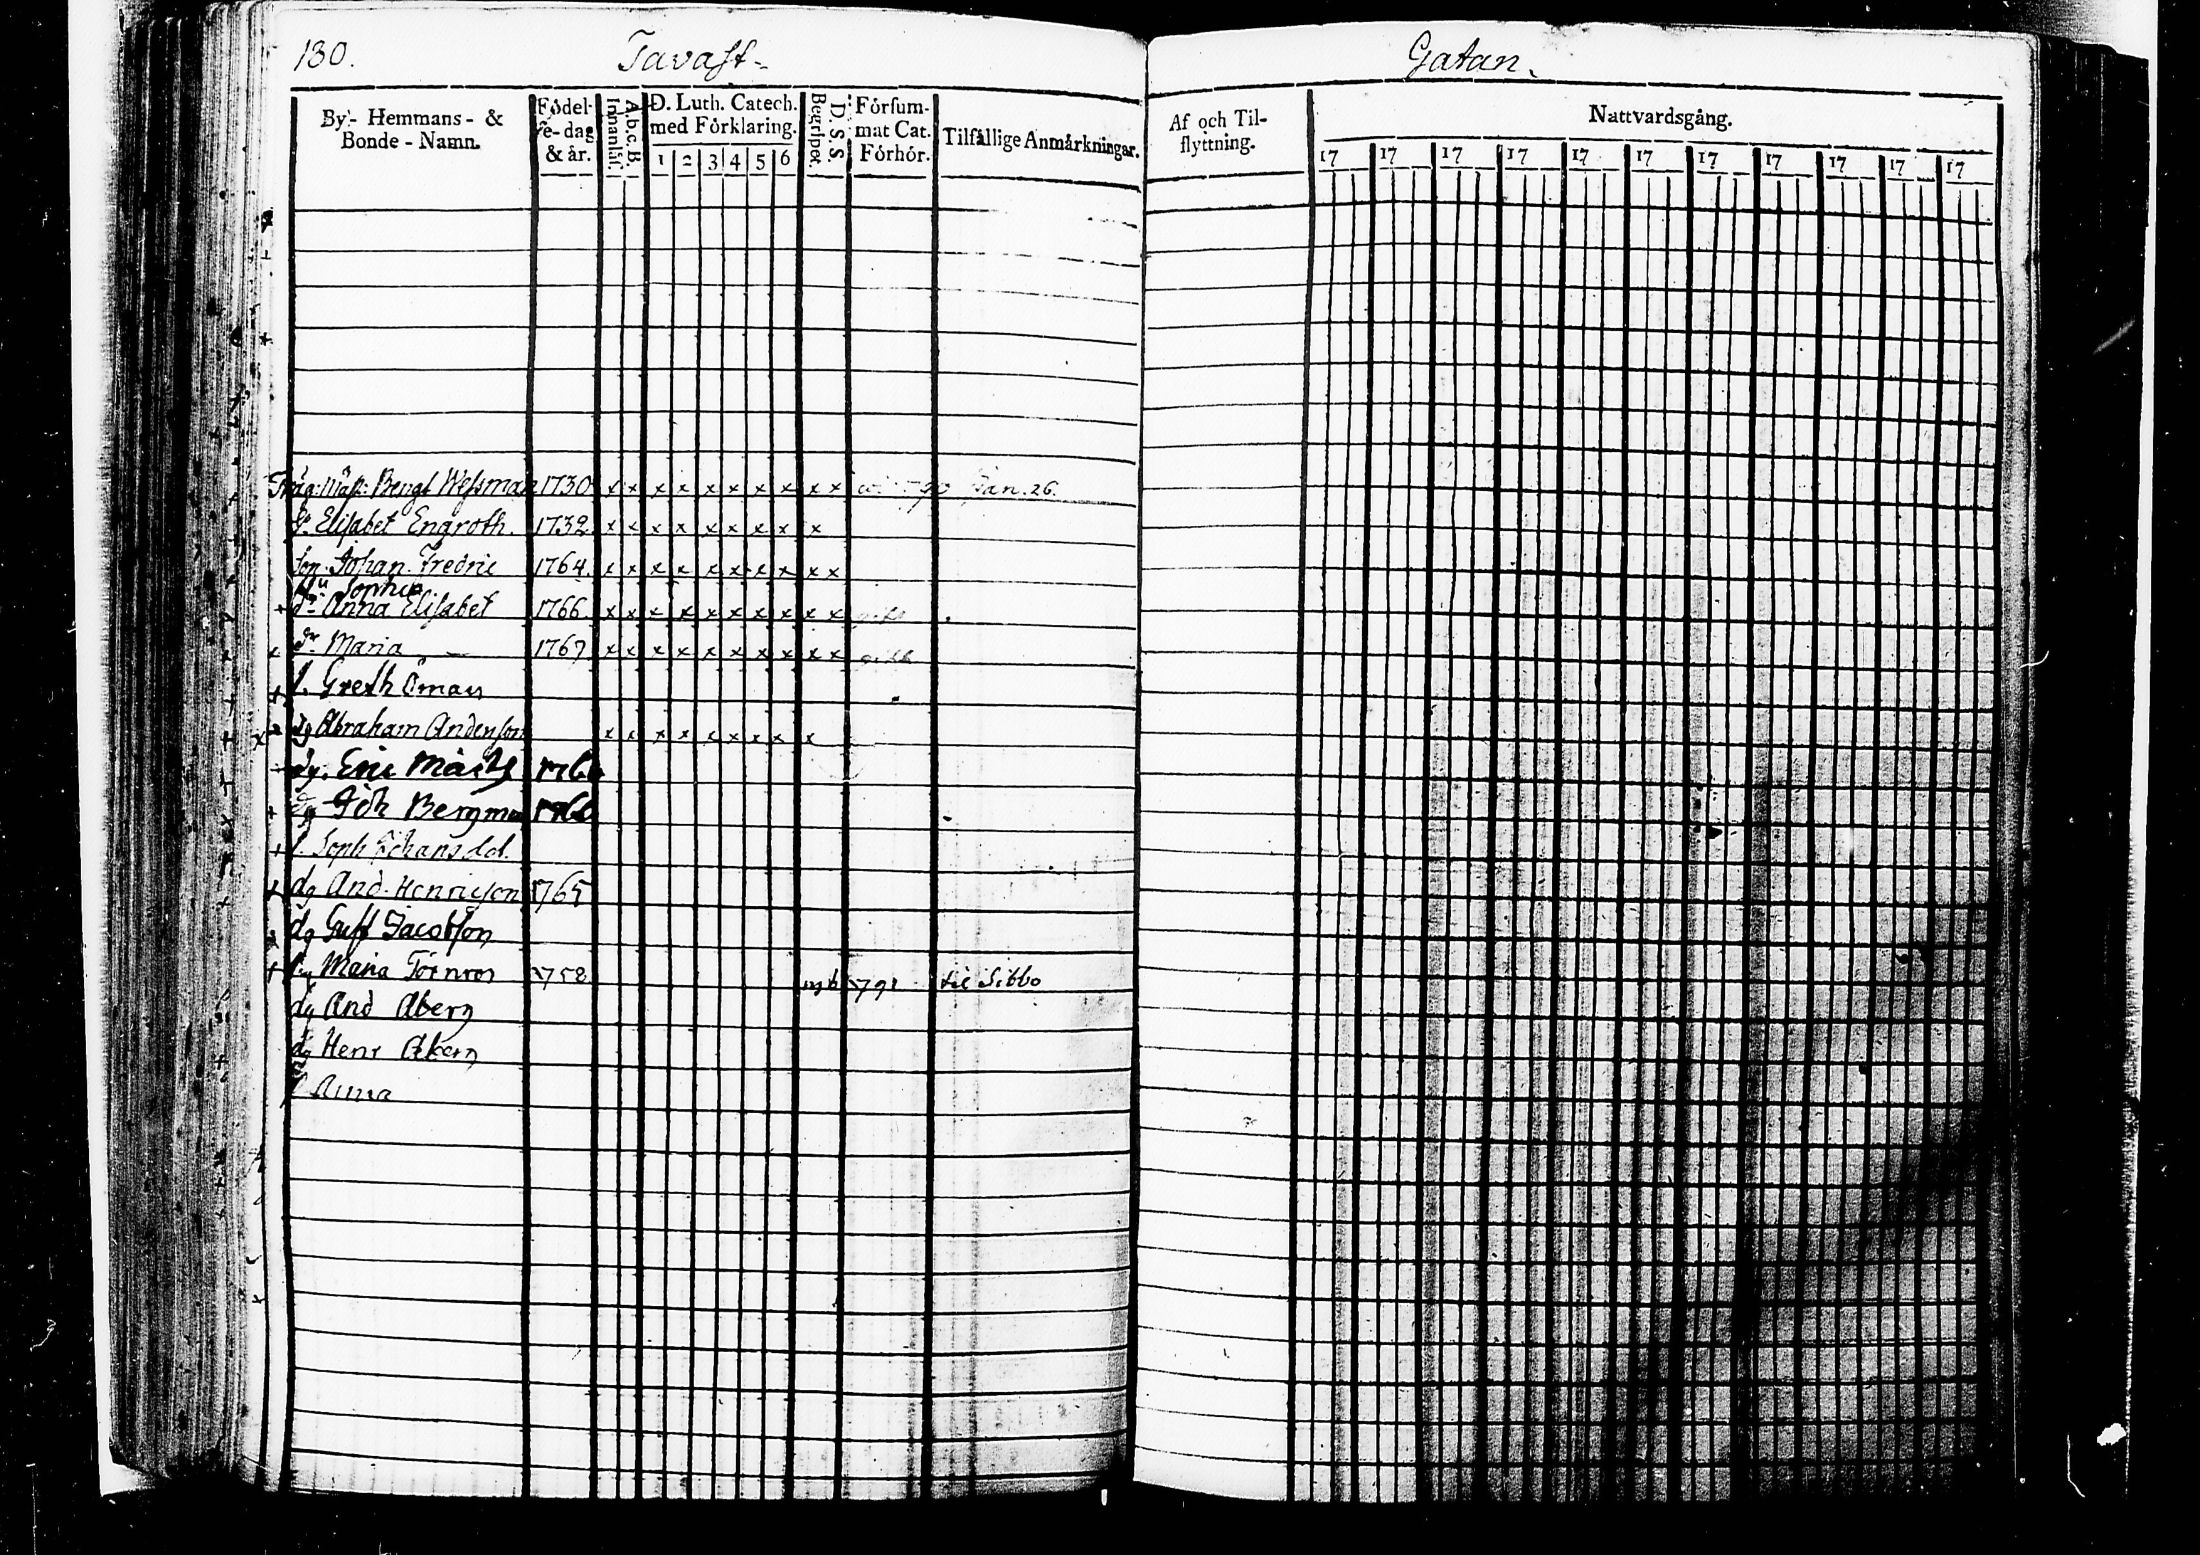 130. Tavast- Gatan.
By- Hemmans- & Bonde-Namn.
Födelse-dag & år.
A.b.c.B. Innanläs.
D. Luth. Catech. med Förklaring.
1 2 3 4 5 6
D. S. S. Begripet.
Försummat Cat. Förhör.
Tilfällige Anmärkningar.
Af och Tilflyttning.
Nattvardsgång.
17 17 17 17 17 17 17 17 17 17 17
Bengt Wessman 1730 x x x x x x x x x x Jan. 26.
h: Elisabet Engroth. 1732. x x x x x x x x x
son. Johan Fredric 1764. x x x x x x x x x x
Sophia
dr Anna Elisabet 1766. x x x x x x x x x x gift
dr Maria 1767 x x x x x x x x x x gift
p. Greth Öman
dg Abraham Anderson x x x x x x x x x
dg. Eric 176
dg Joh Bergman 1760
p. Soph Johans dot.
dg And. Henricson 1765
dg Gust Jacobson
Maria Törnros 1758 1791 til Sibbo
dg And Aberg
dg Henr
p Anna